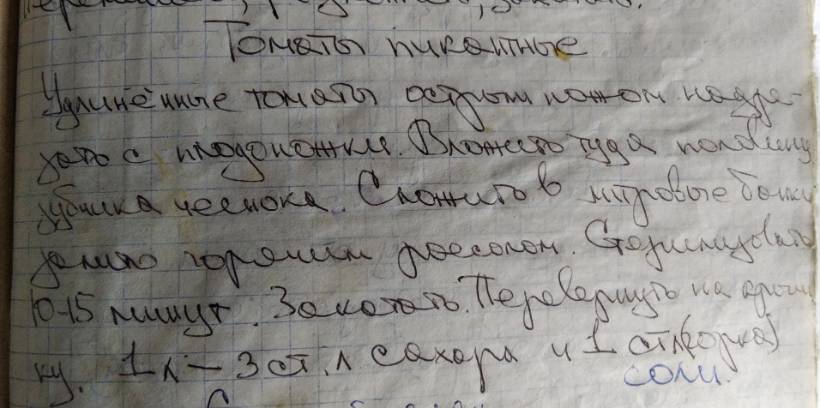 Томаты пикантные
Удлинённые томаты острым ножом надре-
зать с плодоножки. Вложить туда половину
зубчика чеснока. Сложить в литровые банки
залить горячим рассолом. Стерилизовать
10-15 минут. Закатать. Перевернуть на крыш
ку. 1 л – 3 ст. л сахара и 1 ст.л(горка)
соли.